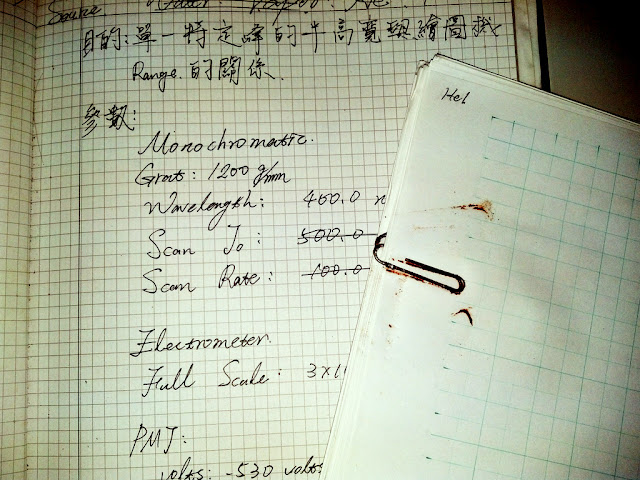 Source Water Vapor
目的:單一特定峰的半高寬與繪圖機
Range 的關係.
參數:
Monochromatic.
Grat: 1200 g/mm
Wavelength: 400.0 n
Scan To: 500.0
Scan Rate: 100.0
Electrometer.
Full Scale: 3×1
PMT:
volts: -530 volts
Hel